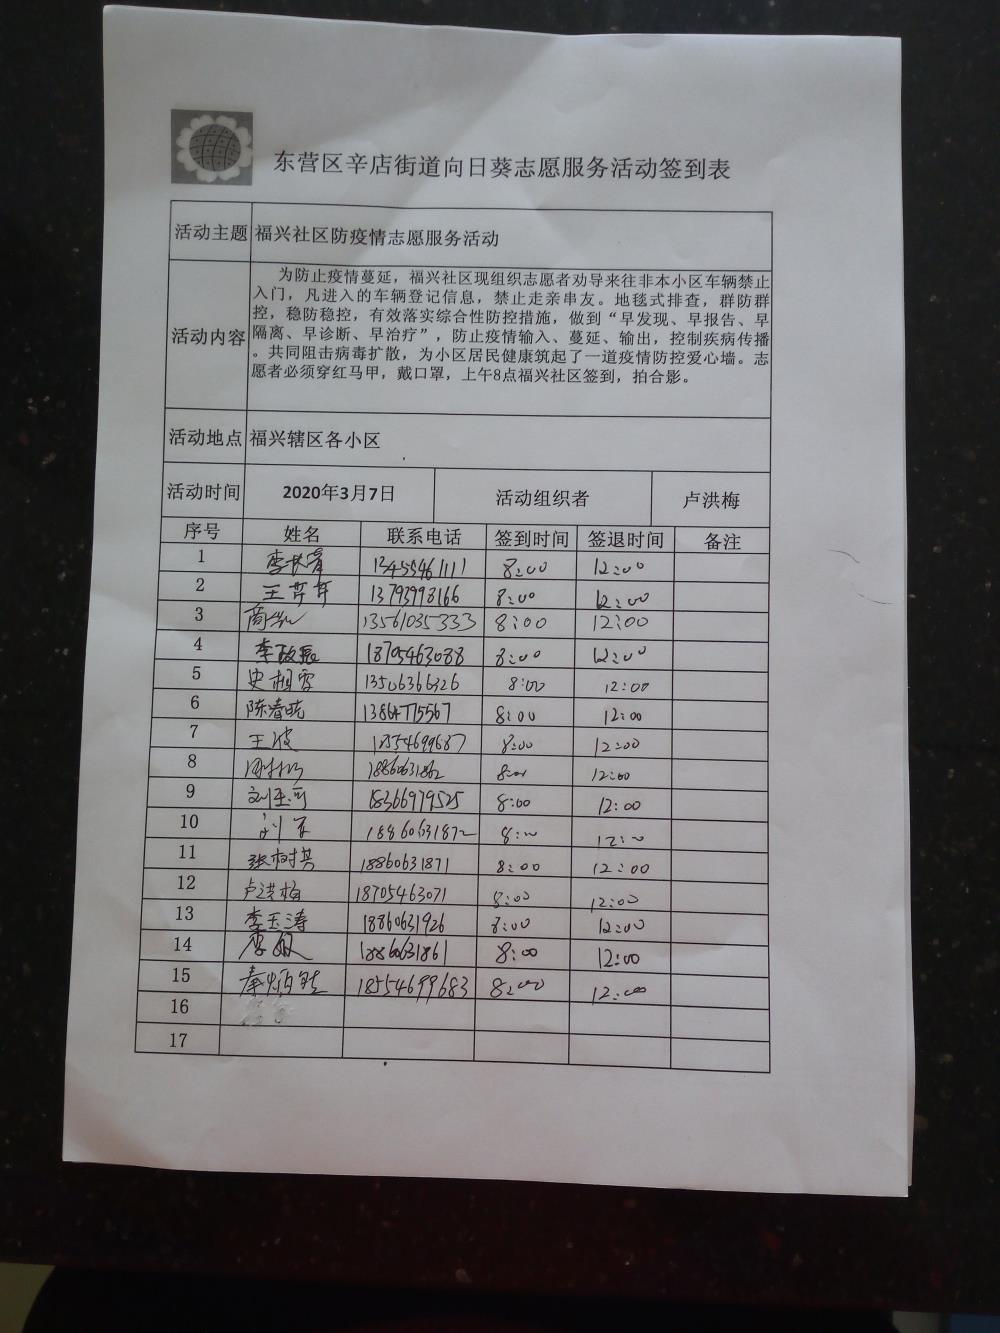 东营区辛店街道向日葵志愿服务活动签到表
活动主题 福兴社区防疫情志愿服务活动
活动内容
为防止疫情蔓延，福兴社区现组织志愿者劝导来往非本小区车辆禁止
入门，凡进入的车辆登记信息，禁止走亲串友。地毯式排查，群防群
控，稳防稳控，有效落实综合性防控措施，做到“早发现、早报告、早
隔离、早诊断、早治疗”，防止疫情输入、蔓延、输出，控制疾病传播
。共同阻击病毒扩散，为小区居民健康筑起了一道疫情防控爱心墙。志
愿者必须穿红马甲，戴口罩，上午8点福兴社区签到，拍合影。
活动地点 福兴辖区各小区
活动时间 2020年3月7日 活动组织者 卢洪梅
序号 姓名 联系电话 签到时间 签退时间 备注
1 13455461111 8:00 12:00
2 王芹芹 13793998166 8:00 12:00
3 13561035333 8:00 12:00
4 李政辰 18705463088 8:00 12:00
5 史相雪 13506366326 8:00 12:00
6 陈春晓 13864775567 8:00 12:00
7 王波 8:00 12:00
8 18860631862 8:00 12:00
9 18366979525 8:00 12:00
10 刘军 18860631872 8:00 12:00
11 张树其 18860631871 8:00 12:00
12 卢洪梅 18705463071 8:00 12:00
13 李玉涛 18860631926 8:00 12:00
14 李敏 18860631861 8:00 12:00
15 秦炳钰 18554699683 8:00 12:00
16
17